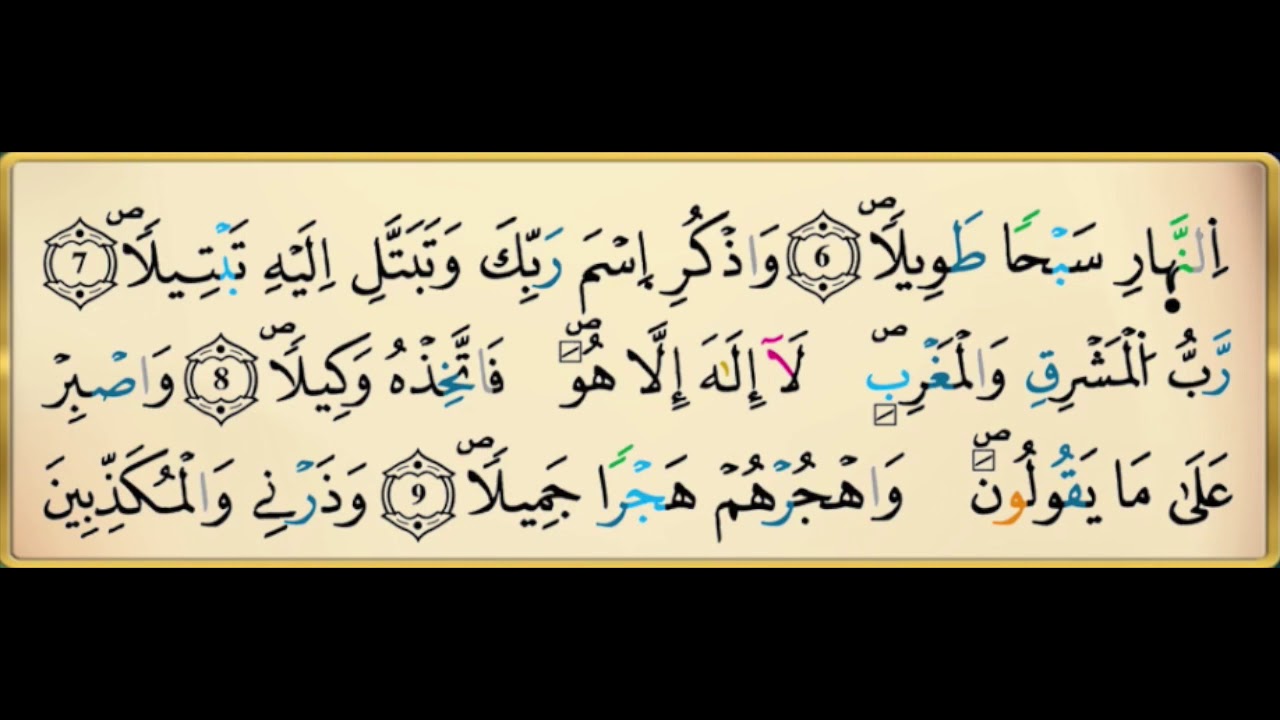 اِلنَّهارِ سَبْحًا طَوِيلًاۖ 6 وَاذْكُرِ إِسْمَ رَبِّكَ وَتَبَتَّلِ اِلَيْهِ تَبْتِيلًاۖ 7
رَّبُّ الْمَشْرِقِ وَالْمَغْرِبِۖ لَآ إِلَٰهَ إِلَّا هُوَۖ فَاتَّخِذْهُ وَكِيلًاۖ 8 وَاصْبِرْ
عَلَىٰ مَا يَقُولُونَۖ وَاهْجُرْهُمْ هَجْرًا جَمِيلًاۖ 9 وَذَرْنِي وَالْمُكَذِّبِينَ